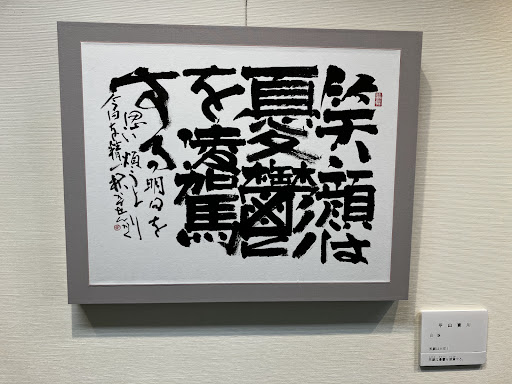 笑顔は
憂鬱
を凌駕
する
明日を
思い煩うより
今日を精一杯